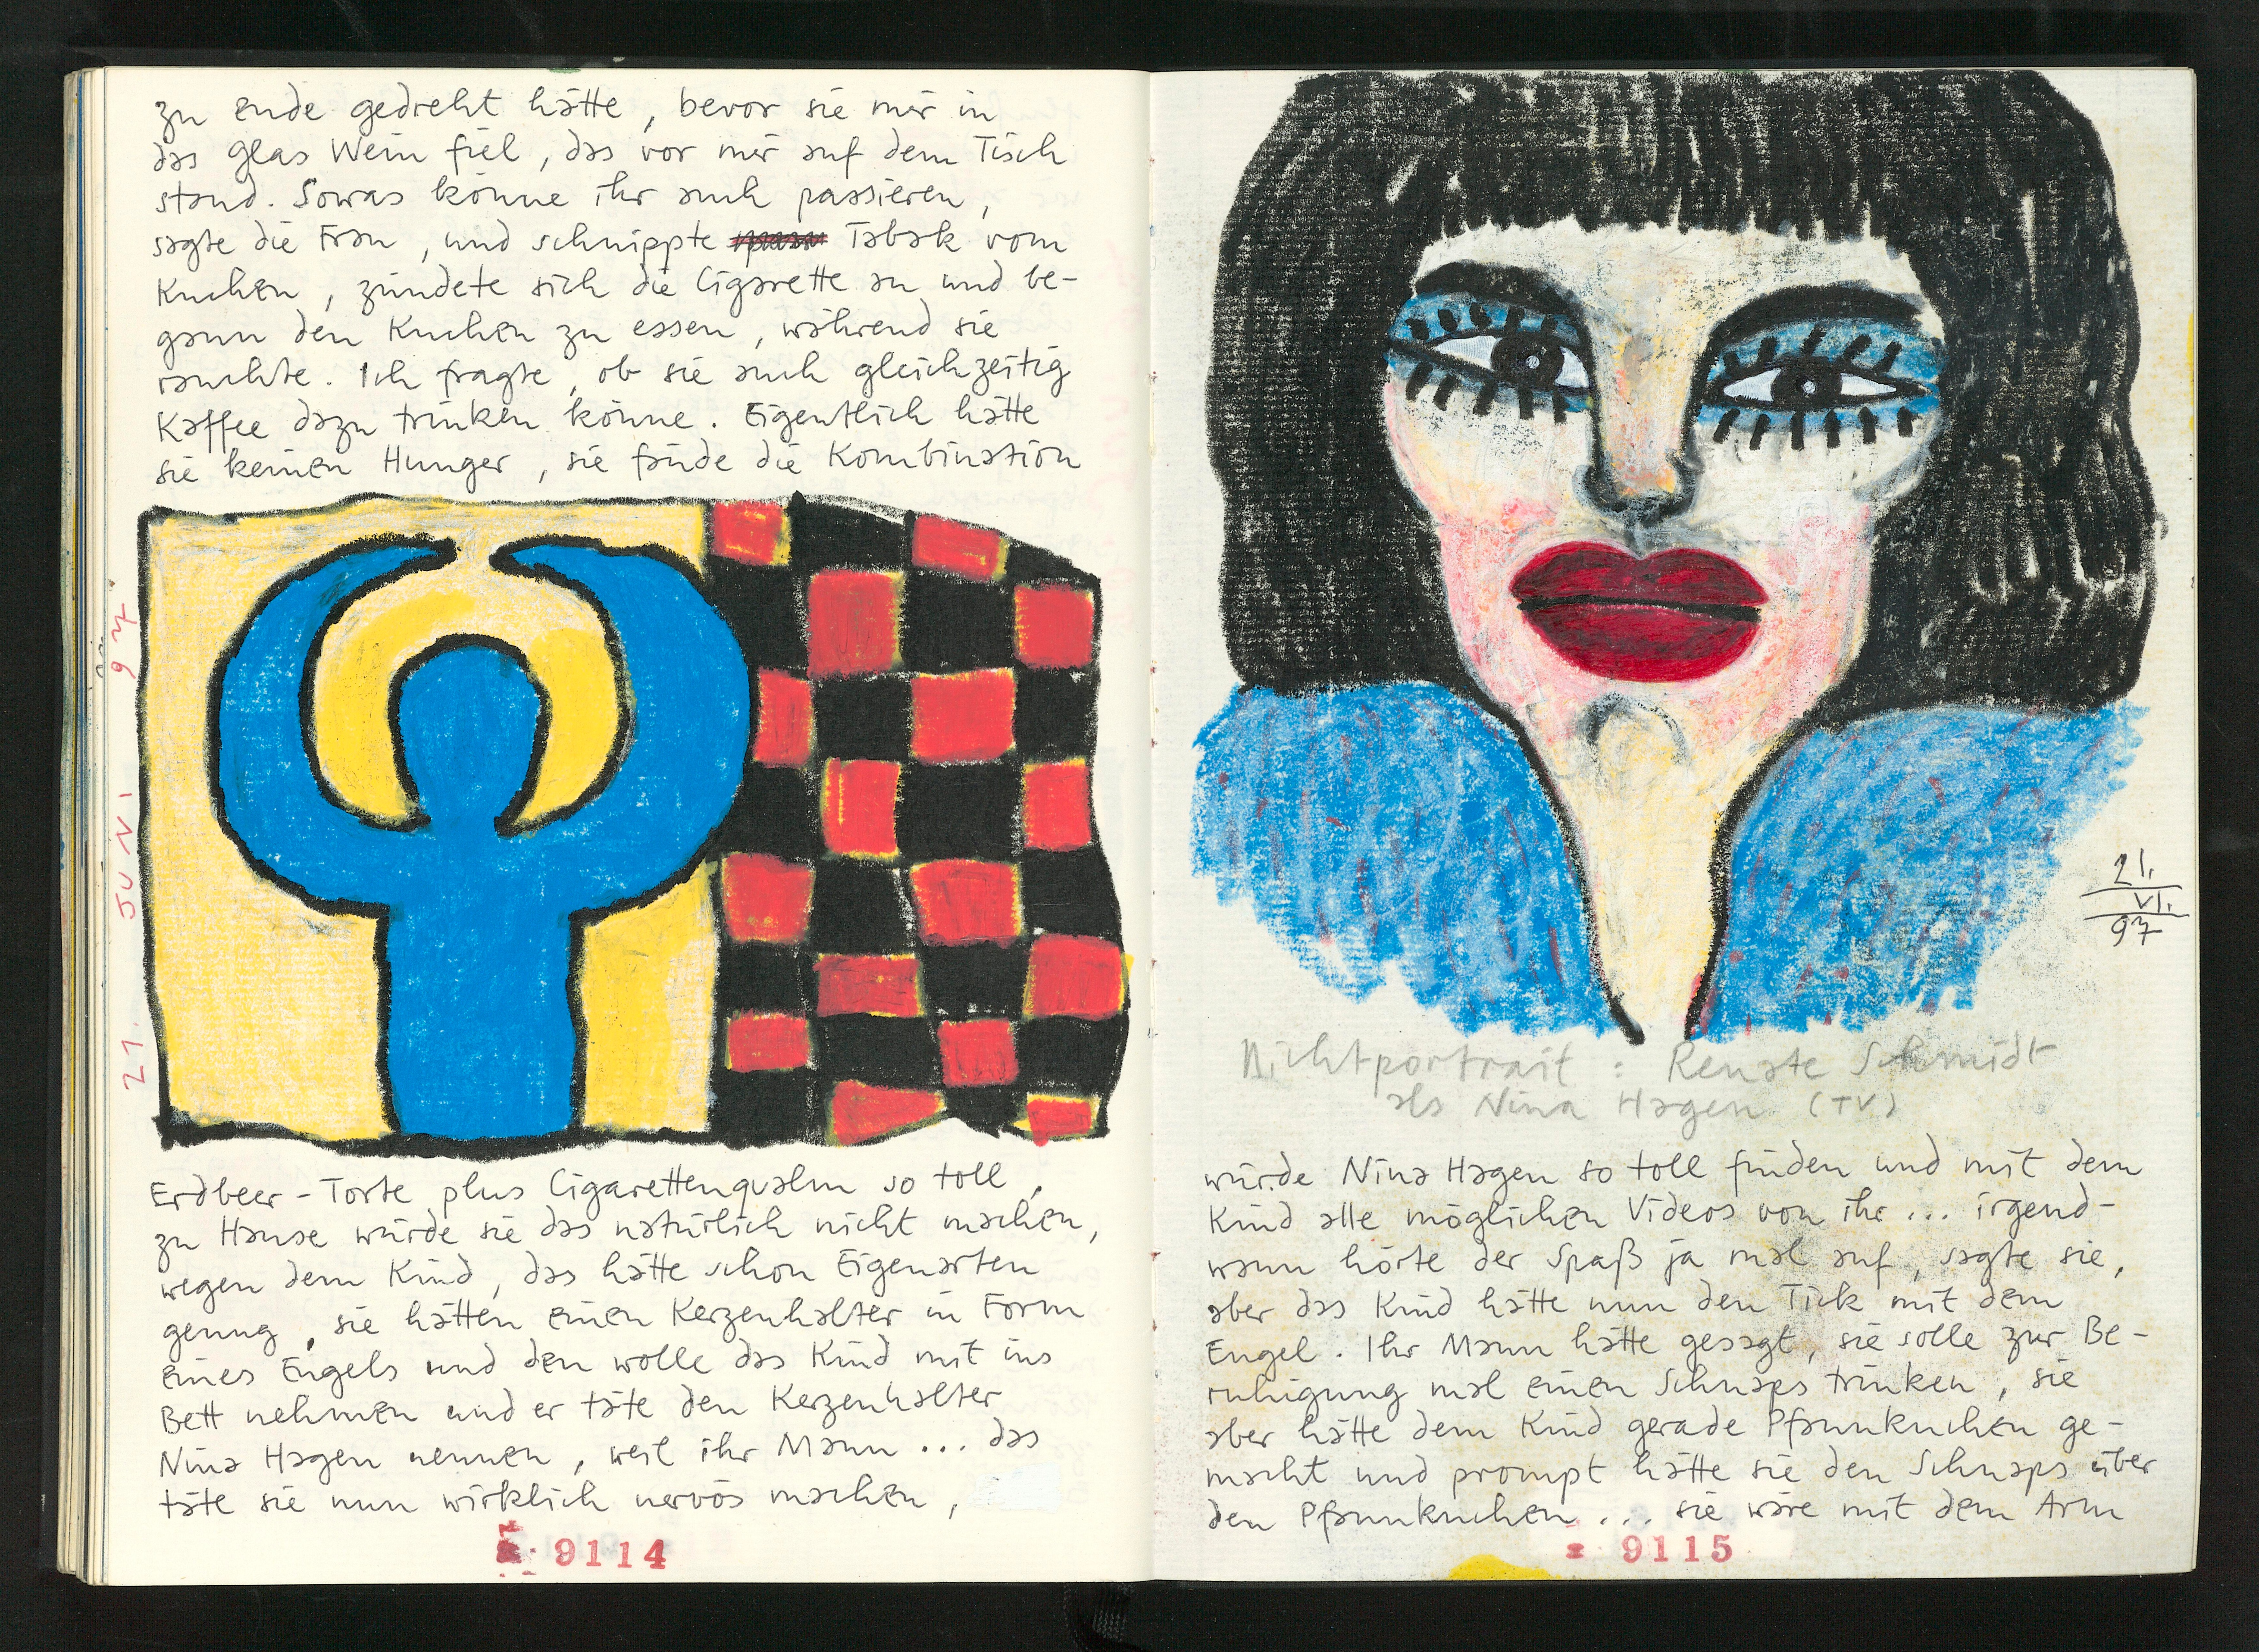 zu ende gedreht hätte, bevor sie mir in
das Glas Wein fiel, das vor mir auf dem Tisch
stand. Sowas könne ihr auch passieren,
sagte die Frau, und schnippte Tabak vom
Kuchen, zündete sich die Cigarette an und be-
gann den Kuchen zu essen, während sie
rauchte. Ich fragte, ob sie auch gleichzeitig
Kaffee dazu trinken könne. Eigentlich hätte
sie keinen Hunger, sie fände die Kombination
21. JUNI 97
Erdbeer-Torte plus Cigarettenqualm so toll,
zu Hause würde sie das natürlich nicht machen,
wegen dem Kind, das hätte schon Eigenarten
genug, sie hätten einen Kerzenhalter in Form
eines Engels und den wolle das Kind mit ins
Bett nehmen und er täte den Kerzenhalter
Nina Hagen nennen, weil ihr Mann ... das
täte sie nun wirklich nervös machen,
9114
21.
VI.
97
Nichtportrait: Renate Schmidt
als Nina Hagen (TV)
würde Nina Hagen so toll finden und mit dem
Kind alle möglichen Videos von ihr ... irgend-
wann hörte der Spaß ja mal auf, sagte sie,
aber das Kind hätte nun den Tick mit dem
Engel. Ihr Mann hätte gesagt, sie solle zur Be-
ruhigung mal einen Schnaps trinken, sie
aber hätte dem Kind gerade Pfannkuchen ge-
macht und prompt hätte sie den Schnaps über
den Pfannkuchen ... sie wäre mit dem Arm
9115